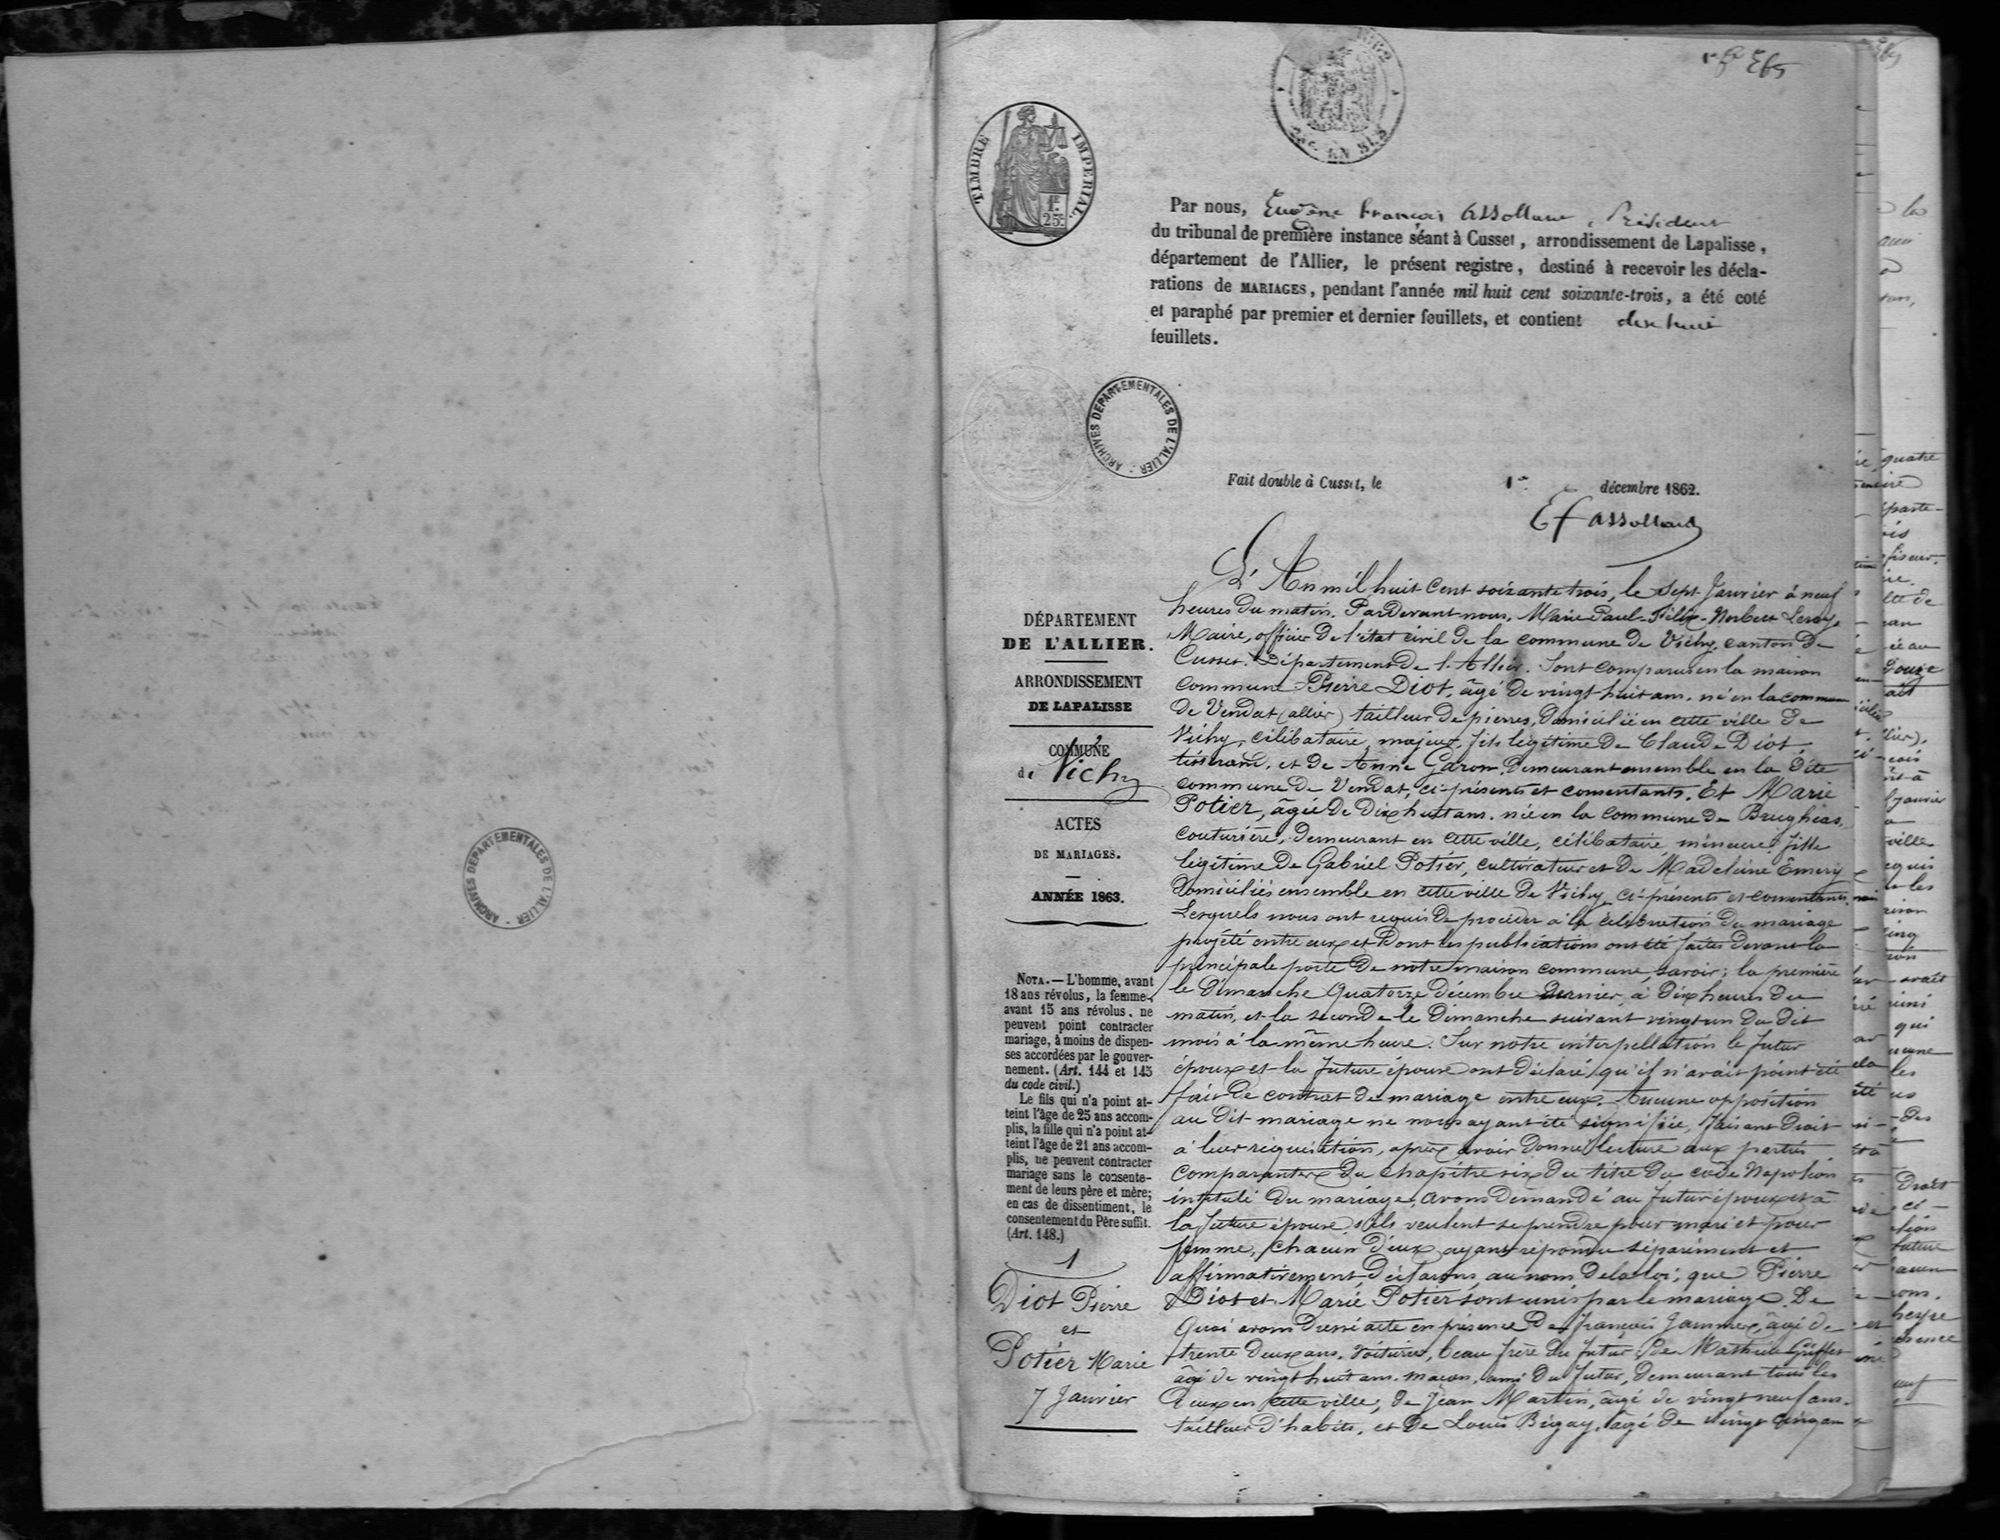 ARCHIVES DÉPARTEMENTALES DE L'ALLIER
TIMBRE IMPÉRIAL
1F.
25C.
Par nous, Eugène François Assollant, Président
du tribunal de première instance séant à Cusset, arrondissement de Lapalisse,
département de l'Allier, le présent registre, destiné à recevoir les décla-
rations de MARIAGES, pendant l'année mil huit cent soixante-trois, a été coté
et paraphé par premier et dernier feuillets, et contient dix huit
feuillets.
ARCHIVES DÉPARTEMENTALES DE L'ALLIER
Fait double à Cusset, le 1er décembre 1862.
EfAssollant
DÉPARTEMENT
DE L'ALLIER.
ARRONDISSEMENT
DE LAPALISSE
COMMUNE
de Vichy
ACTES
DE MARIAGES.
ANNÉE 1863.
NOTA. — L'homme, avant
18 ans révolus, la femme,
avant 15 ans révolus, ne
peuvent point contracter
mariage, à moins de dispen-
ses accordées par le gouver-
nement. (Art. 144 et 145
du code civil.)
Le fils qui n'a point at-
teint l'âge de 25 ans accom-
plis, la fille qui n'a point at-
teint l'âge de 21 ans accom-
plis, ne peuvent contracter
mariage sans le consente-
ment de leurs père et mère;
en cas de dissentiment, le
consentement du Père suffit.
(Art. 148.)
1
Diot Pierre
et
Potier Marie
7 Janvier
L'An mil huit Cent soixante trois, le sept Janvier à neuf
heures du matin. Pardevant nous, Marie Paul-Félix-Norbert Leroy,
Maire, officier de l'état civil de la commune de Vichy, canton de
Cusset. Département de l'Allier. Sont comparus en la maison
commune Pierre Diot, âgé de vingt huit ans, né en la commune
de Vendat (allier) tailleur de pierres, domicilié en cette ville de
Vichy, célibataire, majeur, fils légitime de Claude Diot
tisserand, et de Anne Garon, demeurant ensemble en la dite
commune de Vendat, ci-présents et consentants. Et Marie
Potier, âgée de dix huit ans, née en la commune de Brugheas,
couturière, demeurant en cette ville, célibataire mineure fille
légitime de Gabriel Potier, cultivateur et de Madeleine Emery
domiciliés ensemble en cette ville de Vichy, ci-présents et consentants,
Lesquels nous ont requis de procéder à la célébration du mariage
projeté entre eux et dont les publications ont été faites devant la
principale porte de notre maison commune savoir; la première
le dimanche quatorze décembre dernier, à dix heures du
matin, et la seconde le dimanche suivant vingt un du dit
mois à la même heure. Sur notre interpellation le futur
époux et la future épouse ont déclaré qu'il n'avait point été
fait de contrat de mariage entre eux. Aucune opposition
au dit mariage ne nous ayant été signifiée, faisant droit
à leur réquisition, après avoir donné lecture aux parties
comparantes du chapitre six du titre du code Napoléon
intitulé du mariage, avons demandé au futur époux et à
la future épouse s'ils veulent se prendre pour mari et pour
femme, chacun d'eux ayant répondu séparément et
affirmativement, déclarons, au nom de la loi, que Pierre
Diot et Marie Potier sont unis par le mariage. De
Quoi avons dressé acte en présence de François Jammex, âgé de
trente deux ans, voiturier, beau frère du futur, de Mathieu Griffet
âgé de vingt huit ans, maçon, ami du futur, demeurant tous les
deux en cette ville, de Jean Martin, âgé de vingt neuf ans,
tailleur d'habits, et de Louis Bigay, âgé de vingt cinq ans